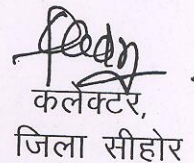 कलेक्टर,
जिला सीहोर